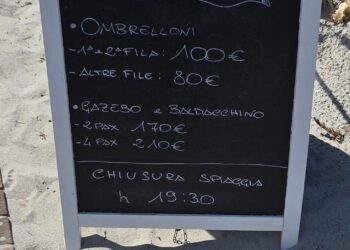 • OMBRELLONI
- 1ª e 2ª FILA: 100€
- ALTRE FILE: 80€
• GAZEBO e BALDACCHINO
- 2 PAX: 170€
- 4 PAX: 210€
CHIUSURA SPIAGGIA
h 19:30